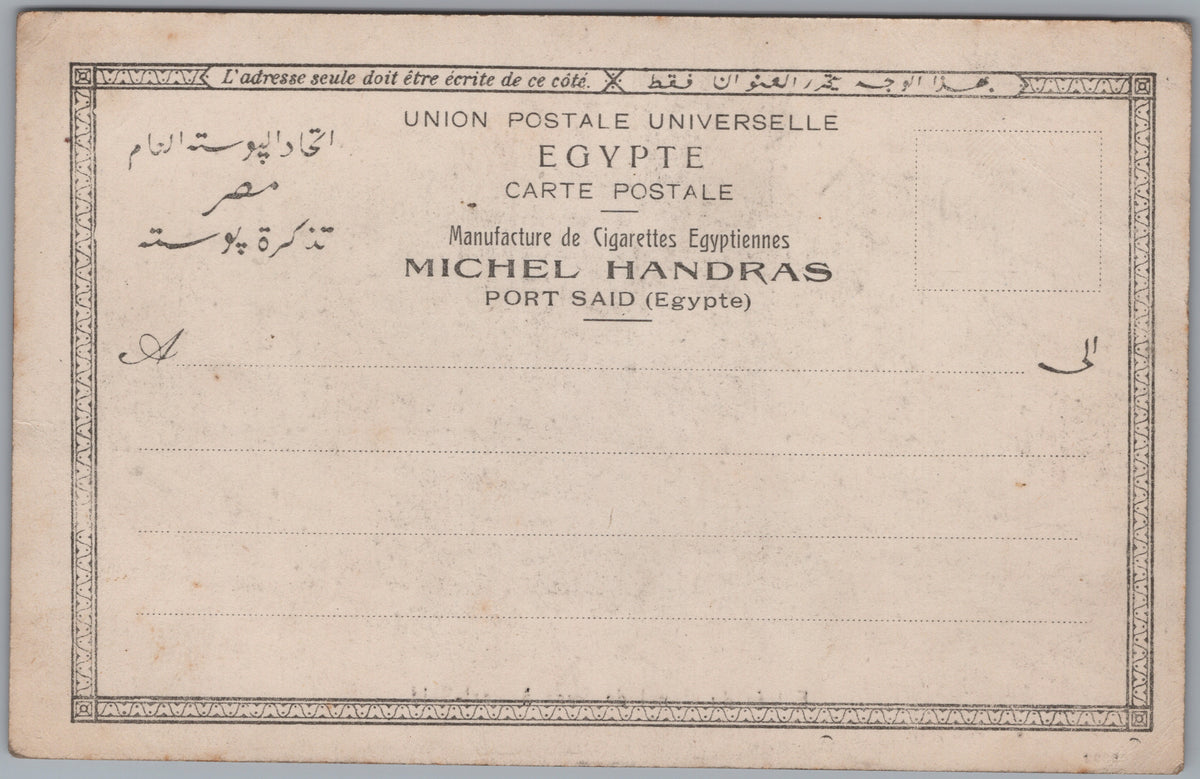 L'adresse seule doit être écrite de ce côté. بهذا الوجه يحرر العنوان فقط
UNION POSTALE UNIVERSELLE
EGYPTE
CARTE POSTALE
اتحاد البوسته العام
مصر
تذكرة بوسته
Manufacture de Cigarettes Egyptiennes
MICHEL HANDRAS
PORT SAID (Egypte)
A الى